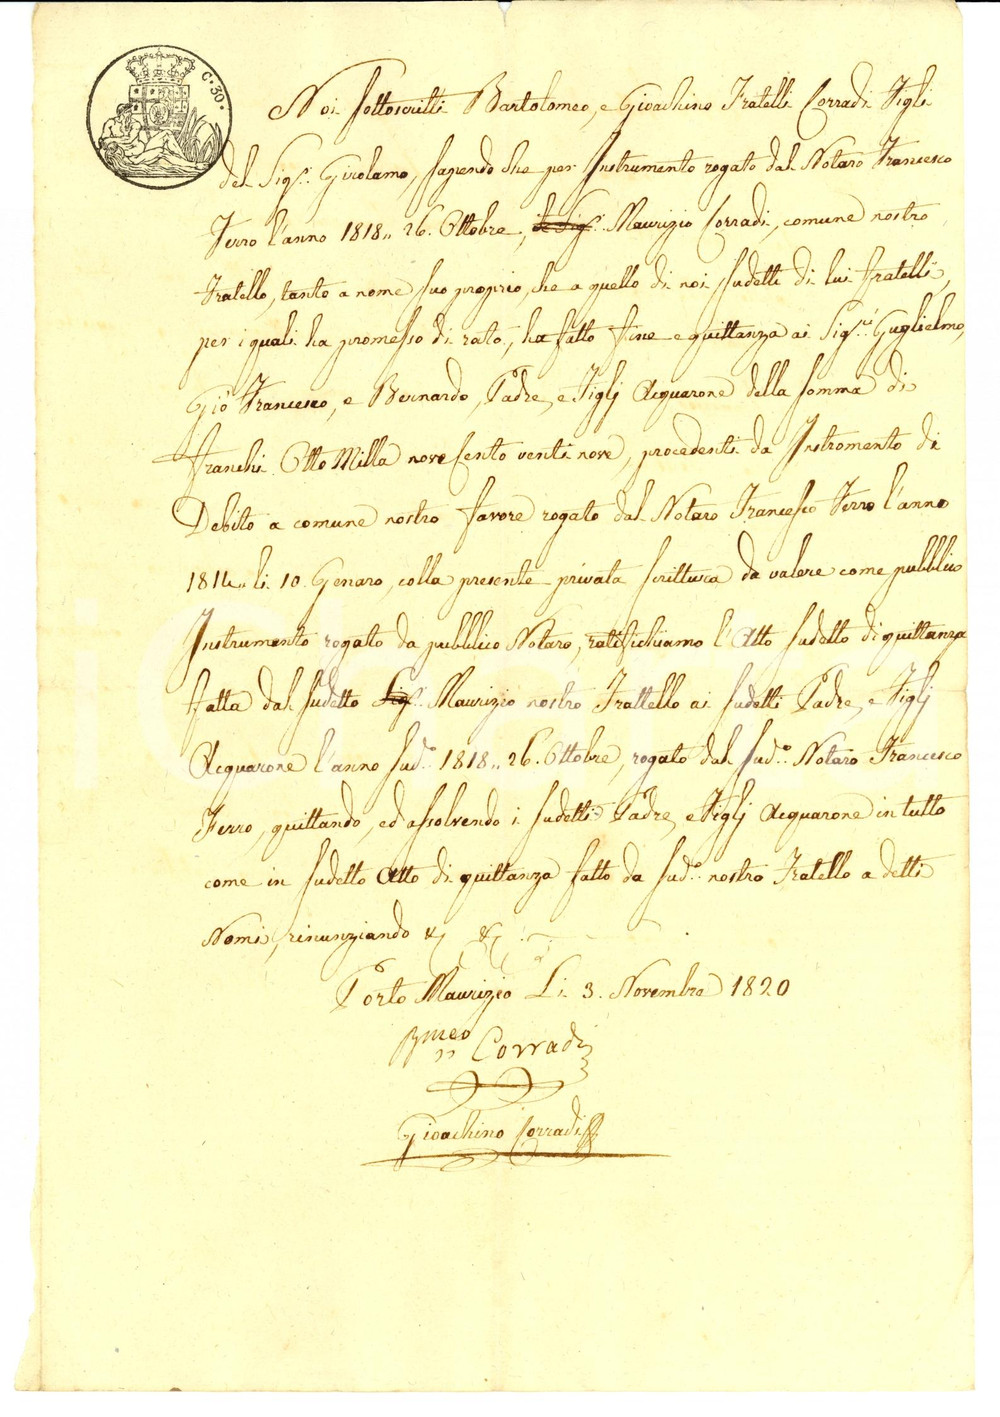 C. 30.
Noi sottoscritti Bartolomeo, e Gioachino Fratelli Corradi Figli
del Sig.r Girolamo, sapendo che per Instrumento rogato dal Notaro Francesco
Ferro l'anno 1818,, 26. Ottobre, il Sig.r Maurizio Corradi, comune nostro
Fratello, tanto a nome suo proprio, che a quello di noi sudetti di lui fratelli,
per i quali ha promesso di rato, ha fatto fine e quittanza ai Sig.ri Guglielmo,
Gio Francesco, e Bernardo, Padre, e Figlj Acquarone della somma di
franchi Otto Milla nove cento venti nove, procedenti da Instromento di
Debito a comune nostro favore rogato dal Notaro Francesco Ferro l'anno
1814,, li 10. Genaro, colla presente privata scrittura da valere come pubblico
Instrumento rogato da pubblico Notaro, ratifichiamo l'Atto sudetto di quittanza
fatta dal sudetto Sig.r Maurizio nostro Frattello ai sudetti Padre, e Figlj
Acquarone l'anno sud.o 1818,, 26. Ottobre, rogato dal sud.o Notaro Francesco
Ferro, quittando, ed assolvendo i sudetti Padre, e Figlj Acquarone in tutto
come in sudetto Atto di quittanza fatto da sud.o nostro Fratello a detti
Nomi, rinunziando & &
Porto Maurizio Li 3. Novembre 1820
Bmeo Corradi
Gioachino Corradi